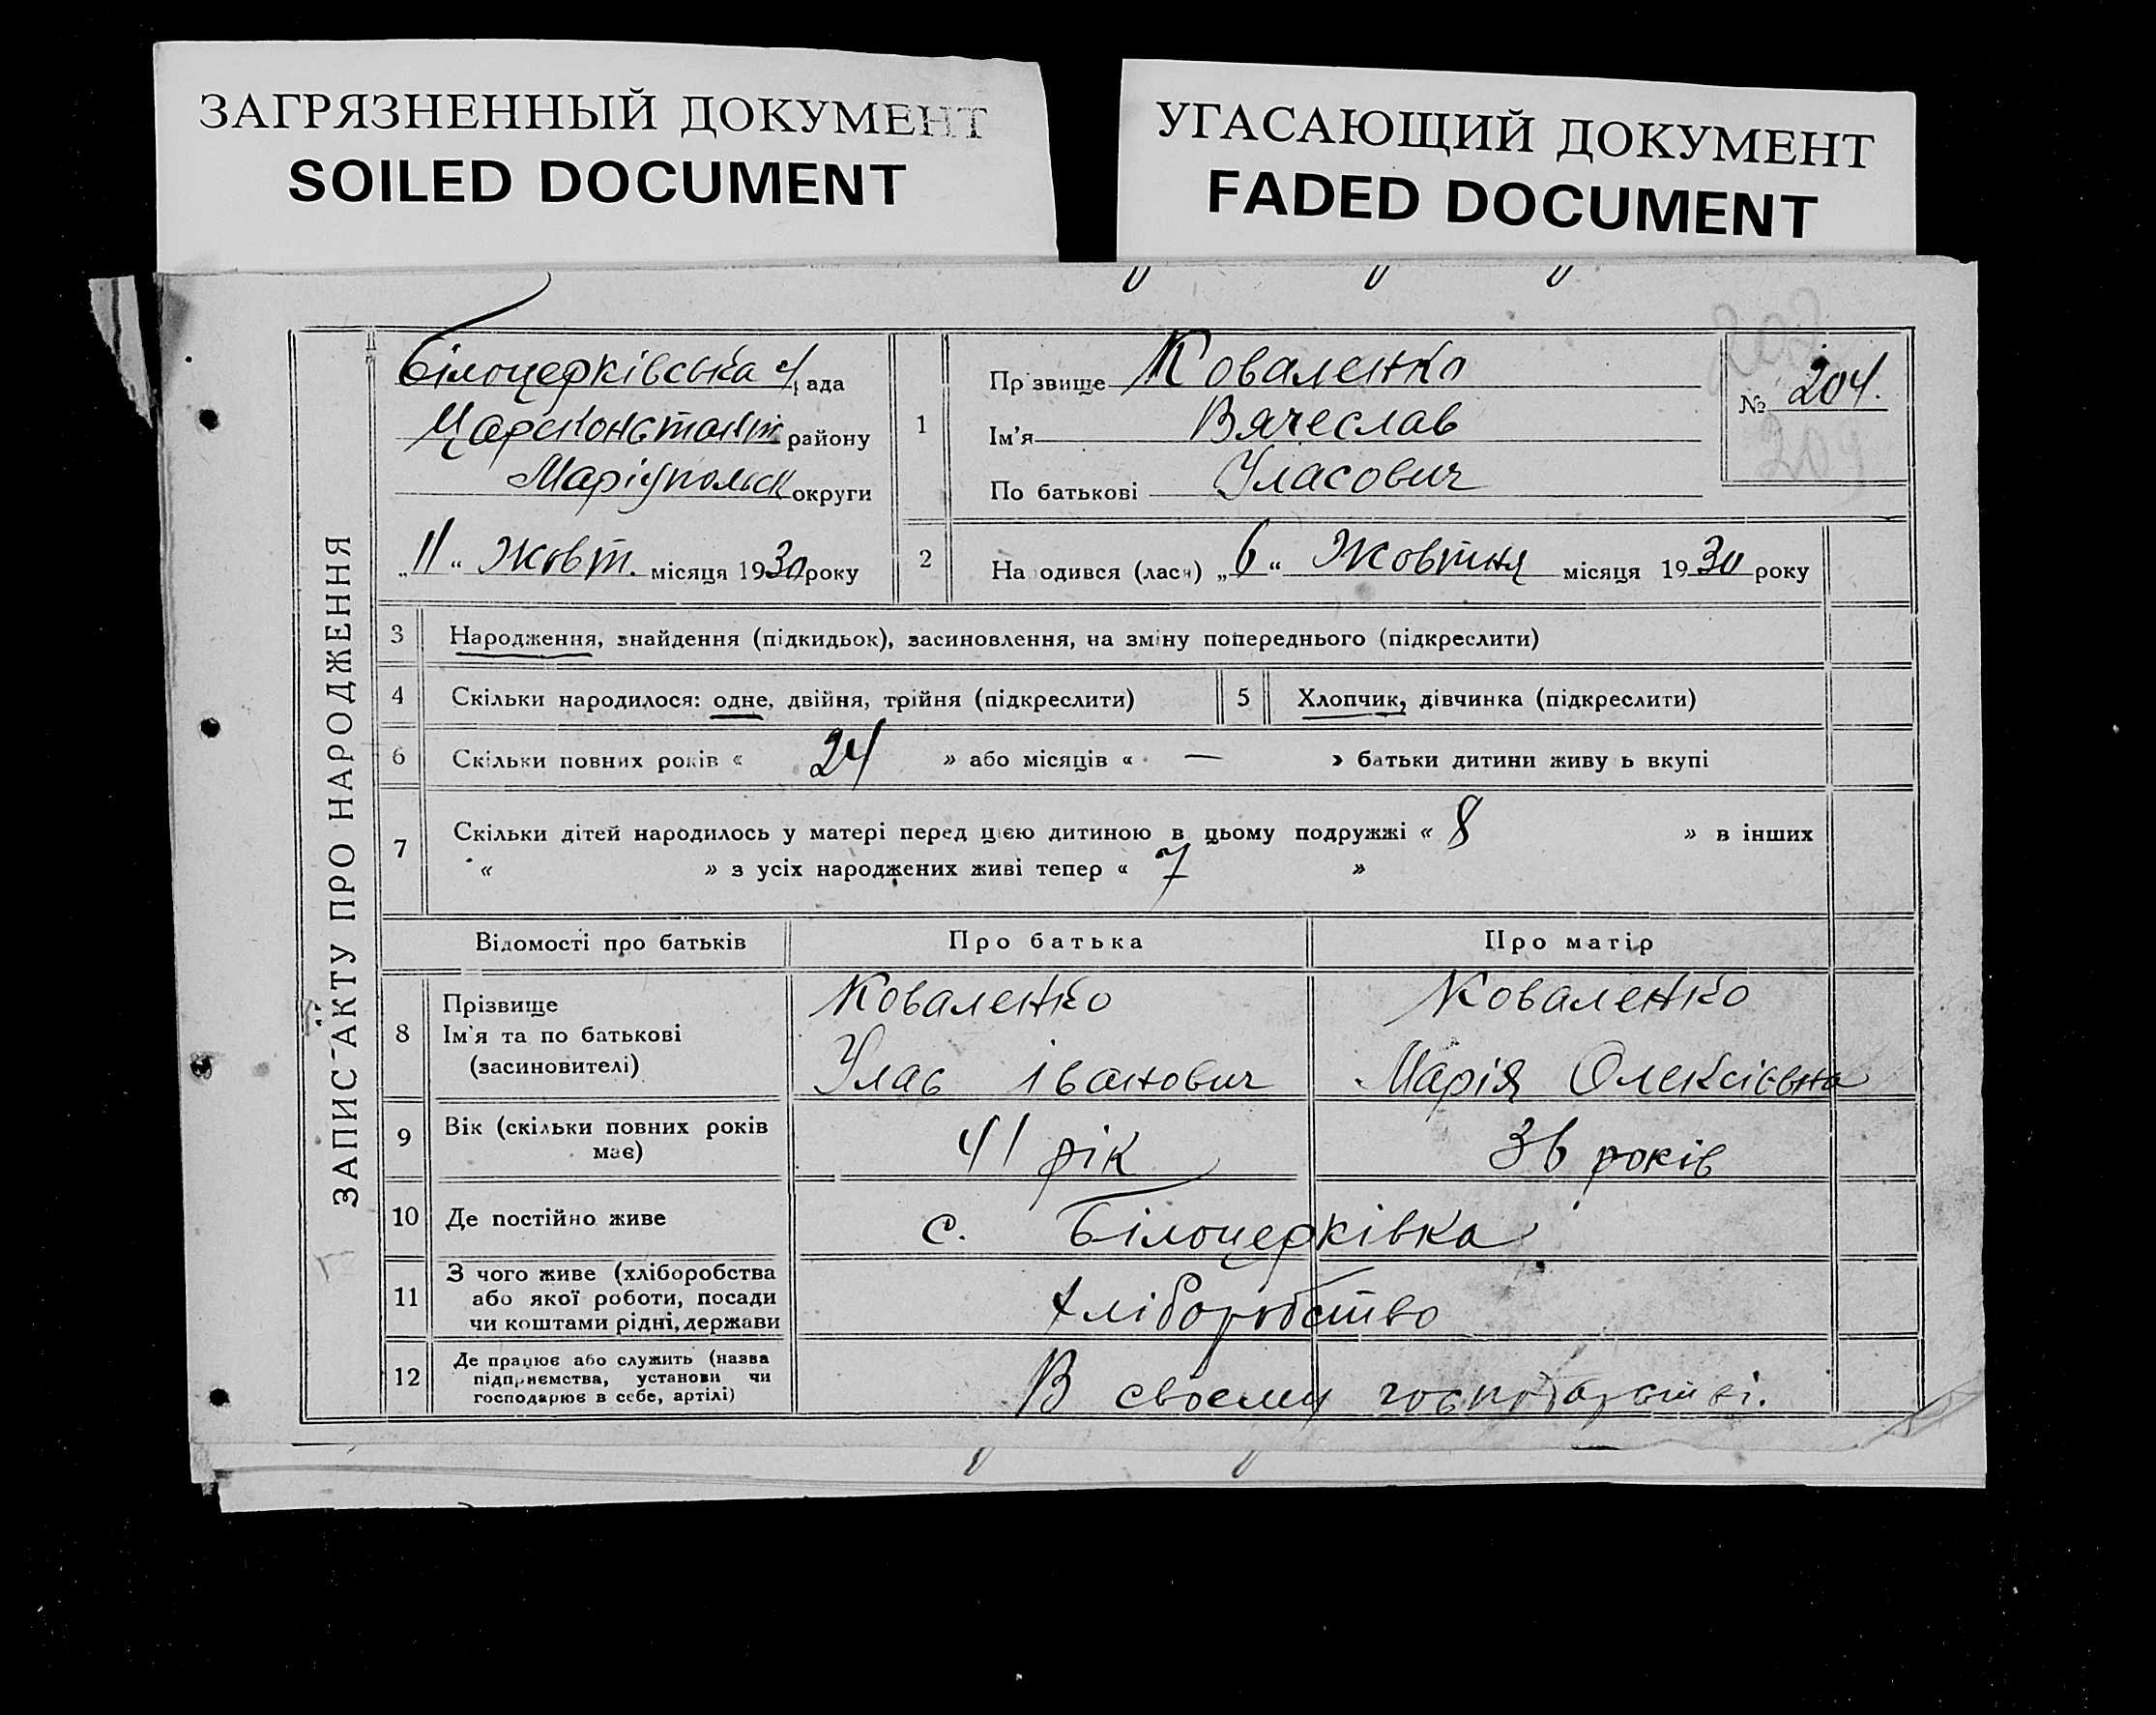 ЗАГРЯЗНЕННЫЙ ДОКУМЕНТ
SOILED DOCUMENT
УГАСАЮЩИЙ ДОКУМЕНТ
FADED DOCUMENT
ЗАПИС АКТУ ПРО НАРОДЖЕННЯ
Білоцерківська рада
Царсконстант району
Маріупольськ округи
„11“ Жовт. місяця 1930 року
1
Прізвище Коваленко
Ім'я Вячеслав
По батькові Уласович
№ 204.
207
209
2 Народився (лась) „6“ Жовтня місяця 1930 року
3 Народження, знайдення (підкидьок), засиновлення, на зміну попереднього (підкреслити)
4 Скільки народилося: одне, двійня, трійня (підкреслити) 5 Хлопчик, дівчинка (підкреслити)
6 Скільки повних років « 24 » або місяців « — » батьки дитини живуть вкупі
7 Скільки дітей народилось у матері перед цією дитиною в цьому подружжі « 8 » в інших
« » з усіх народжених живі тепер « 7 »
Відомості про батьків Про батька Про матір
8 Прізвище
Ім'я та по батькові
(засиновителі)
Коваленко
Улас Іванович
Коваленко
Марія Олексієвна
9 Вік (скільки повних років
має)
41 рік 36 років
10 Де постійно живе с. Білоцерківка
11 З чого живе (хліборобства
або якої роботи, посади
чи коштами рідні, держави
хліборобство
12 Де працює або служить (назва
підприємства, установи чи
господарює в себе, артілі)
В своєму господарстві.